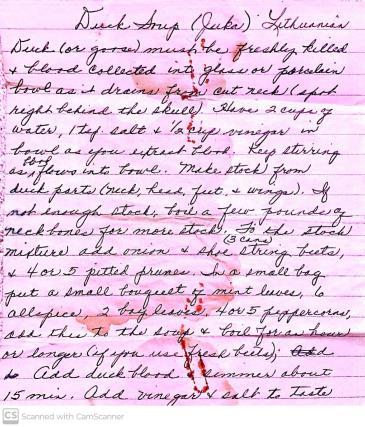 Duck Soup (Juka) Lithuanian
Duck (or goose) must be freshly killed
& blood collected into glass or porcelain
bowl as it drains from cut neck (spot
right behind the skull) Have 2 cups of
water, 1 tsp salt & 1/2 cup vinegar in
bowl as you extract blood. Keep stirring
as blood flows into bowl. Make stock from
duck parts (neck, head, feet, & wings). If
not enough stock, boil a few pounds of
neckbones for more stock. To the stock
mixture add onion & (3 cans) shoe string beets,
& 4 or 5 pitted prunes. In a small bag
put a small bouquet of mint leaves, 6
allspice, 2 bay leaves, 4 or 5 peppercorns,
add this to the soup & boil for an hour
or longer (if you use fresh beets). Add
to Add duck blood & simmer about
15 min. Add vinegar & salt to taste
CS Scanned with CamScanner